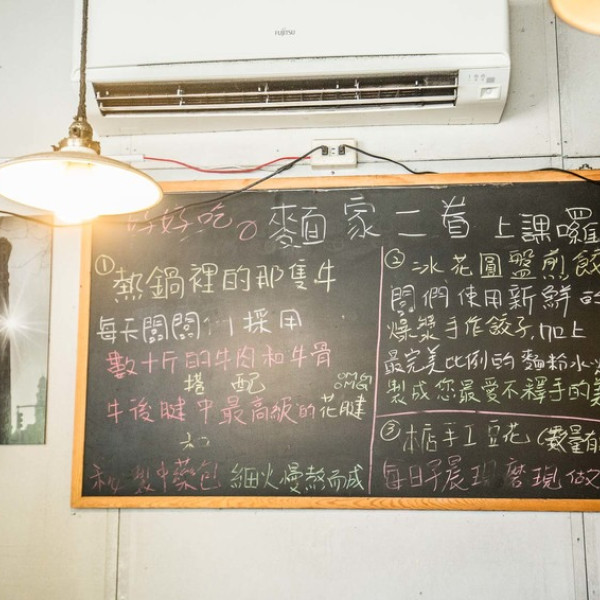 FUJITSU
好好吃。麵家二首 上課囉
①熱鍋裡的那隻牛
每天闆闆们採用
數十斤的牛肉和牛骨
搭配
OMG
牛後腱中最高級的花腱
加
秘製中藥包 細火慢熬而成
②冰花圓盤煎餃
闆們使用新鮮的
爆漿手作餃子,加上
最完美比例的麵粉水
製成您最愛不釋手的美
③本店手工豆花(數量有
每日予晨現磨現做